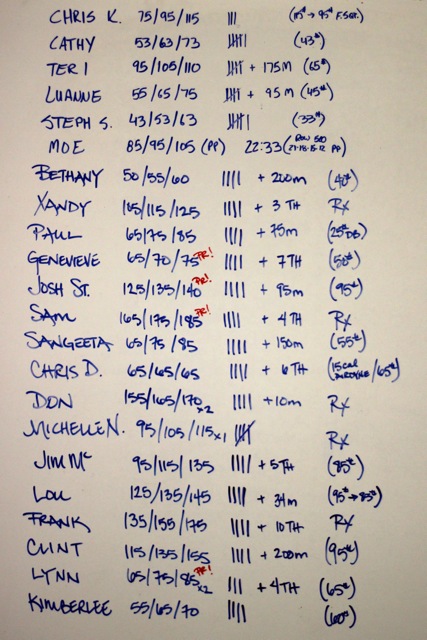 CHRIS K. 75/95/115 III (115# → 95# F.SQT.)
CATHY 53/63/73 IIII (43#)
TERI 95/105/110 IIII + 175M (65#)
LUANNE 55/65/75 IIII + 95M (45#)
STEPH S. 43/53/63 IIII (33#)
MOE 85/95/105 (PP) 22:33 (ROW 500 21-18-15-12 PP)
BETHANY 50/55/60 IIII + 200m (40#)
XANDY 105/115/125 IIII + 3 TH RX
PAUL 65/75/85 IIII + 75m (25# DB)
GENEVIEVE 65/70/75 PR! IIII + 7TH (50#)
JOSH ST. 125/135/140 PR! IIII + 95m (95#)
SAM 165/175/185 PR! IIII + 4TH RX
SANGEETA 65/75/85 IIII + 150m (55#)
CHRIS D. 65/65/65 IIII + 6TH (15 CAL /65#)
DON 155/165/170 x2 IIII +10m RX
MICHELLE N. 95/105/115 x1 IIII RX
JIM Mc 95/115/135 IIII + 5TH (85#)
LOU 125/135/145 IIII + 34m (95# → 85#)
FRANK 135/155/175 IIII + 10TH RX
CLINT 115/135/155 IIII + 200m (95#)
LYNN 65/75/85 PR! x2 III + 4TH (65#)
KIMBERLEE 55/65/70 IIII (60#)